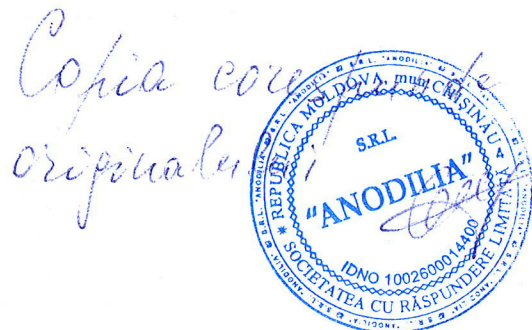 Copia corespunde
originalului!
* REPUBLICA MOLDOVA, mun. CHIȘINĂU 4
SOCIETATEA CU RĂSPUNDERE LIMITATĂ
S.R.L.
"ANODILIA"
IDNO 1002600014400